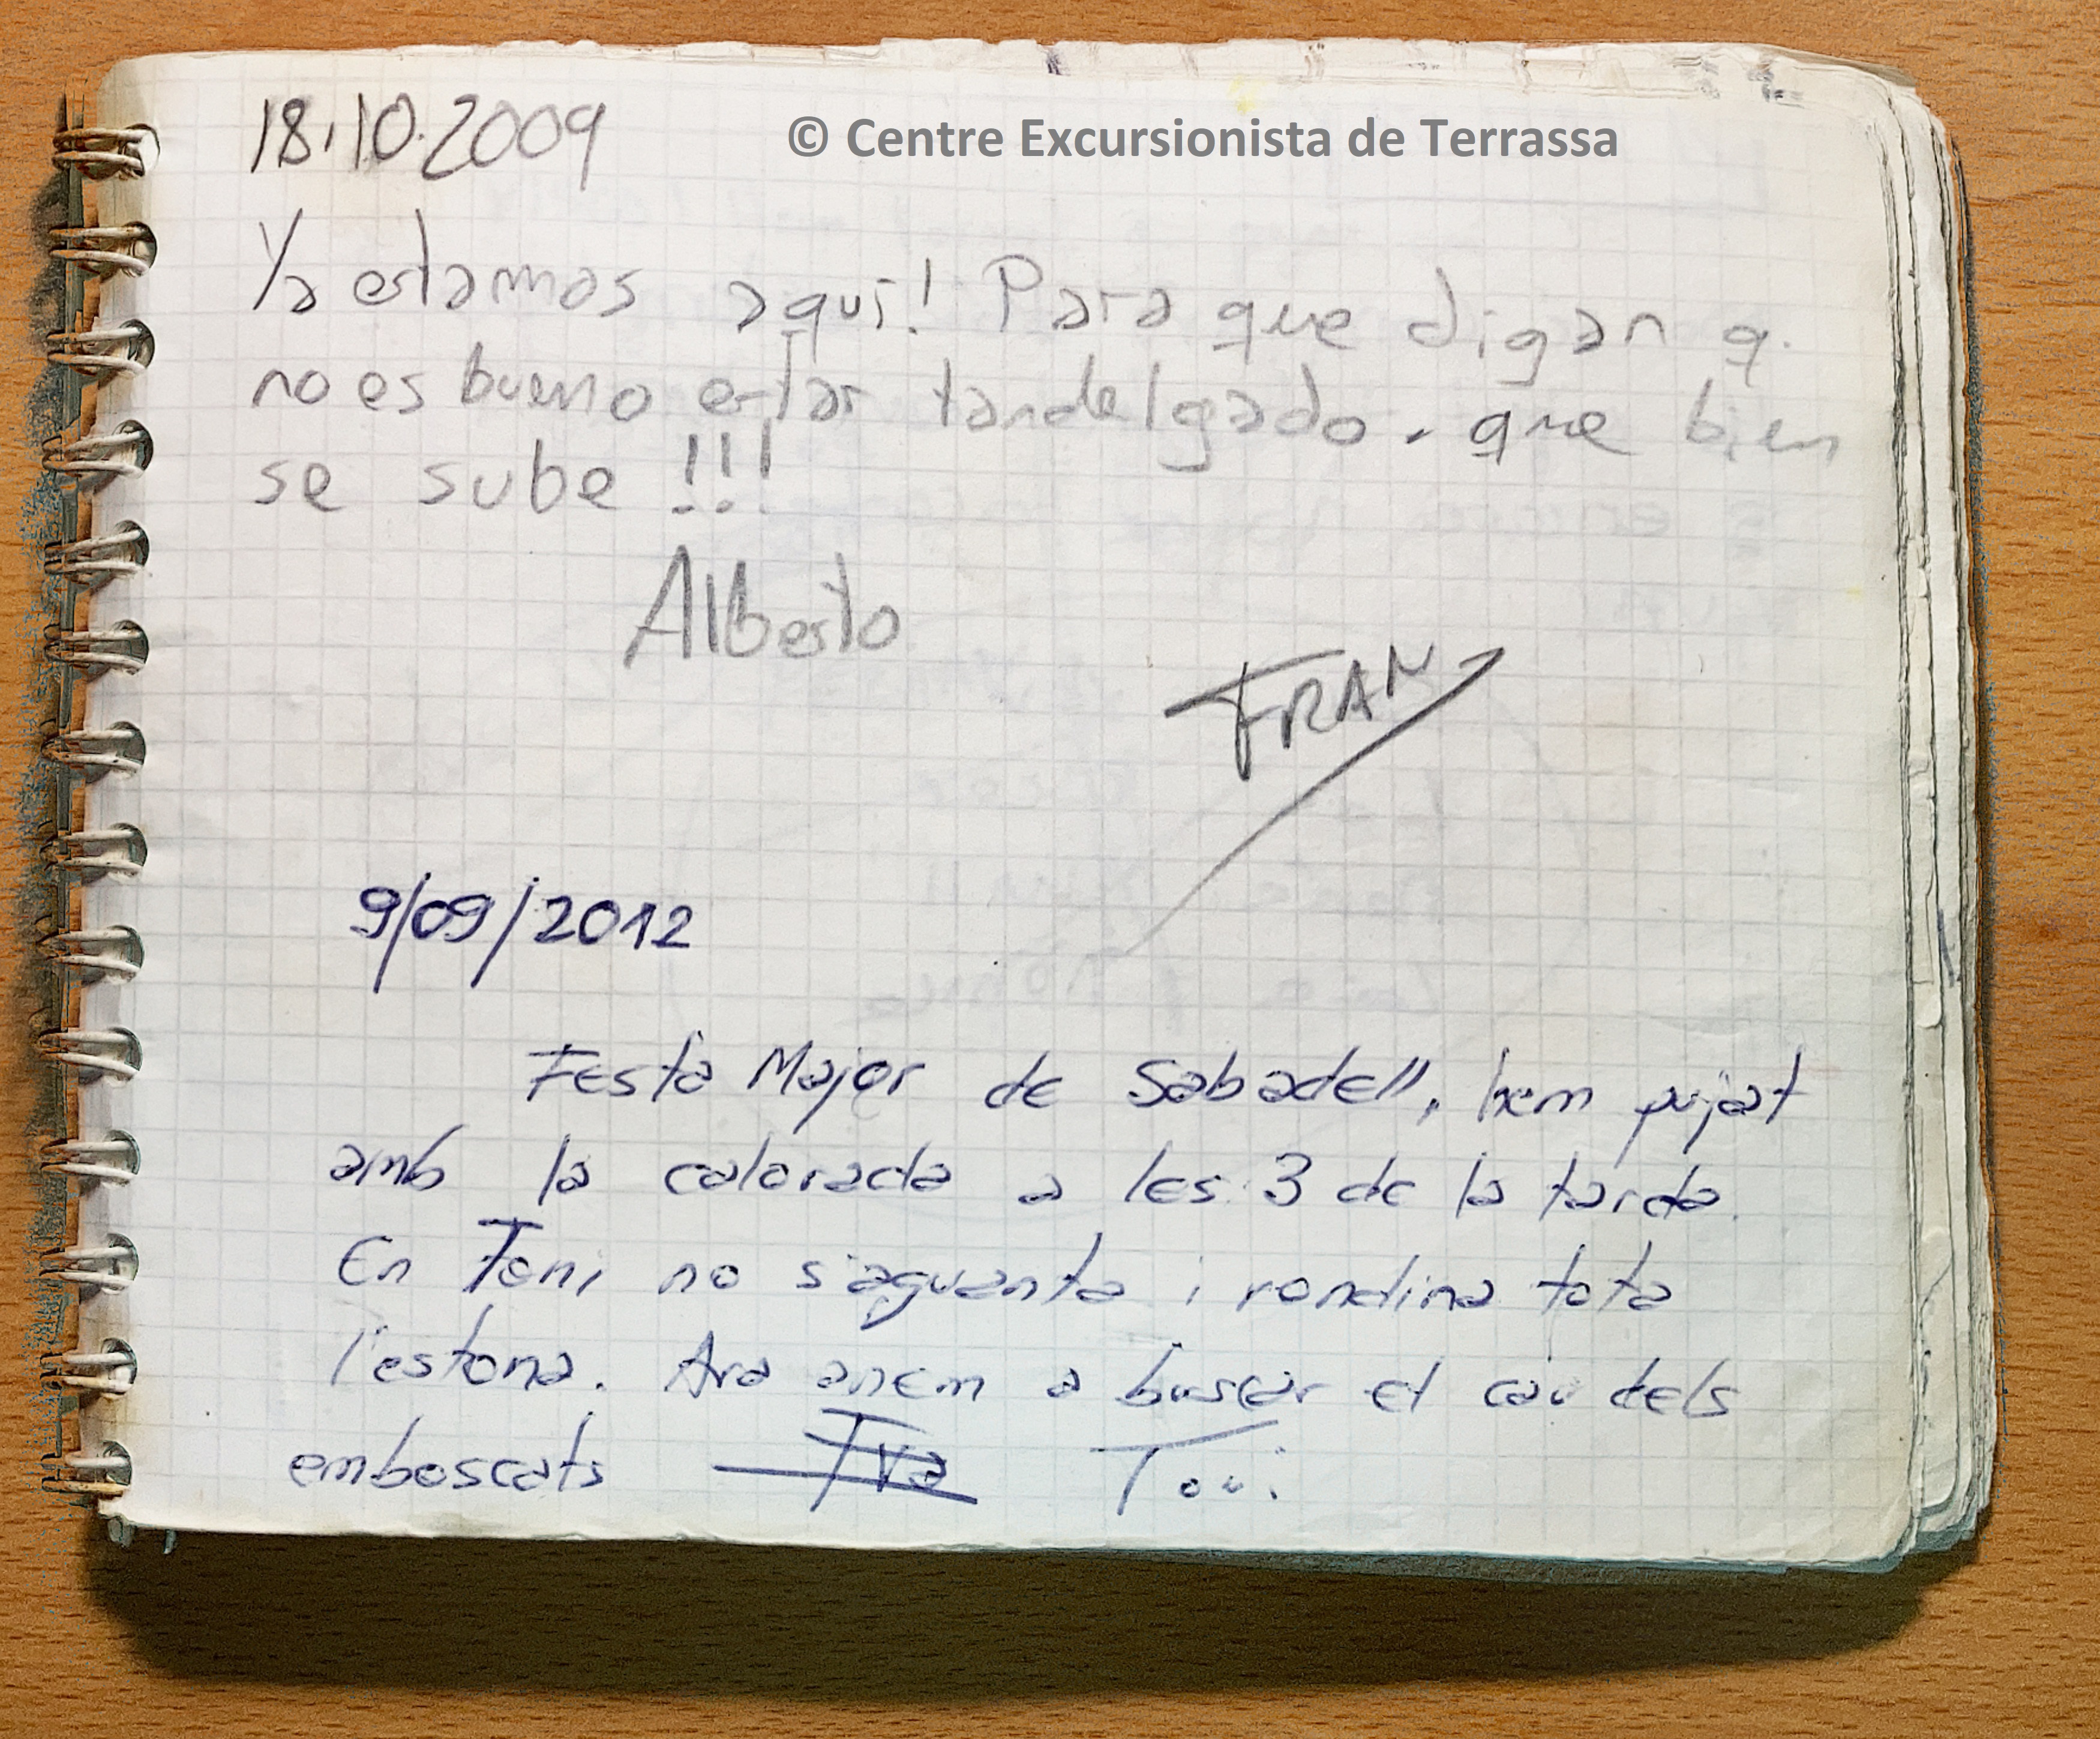 18.10.2009
© Centre Excursionista de Terrassa
Ya estamos aquí! Para que digan q.
no es bueno estar tan delgado. que bien
se sube !!!
Alberto
FRAN
9/09/2012
Festa Major de Sabadell, hem pujat
amb la calorada a les 3 de la tarda.
En Toni no s'aguanta i rondina tota
l'estona. Ara anem a buscar el cau dels
emboscats Iva Toni